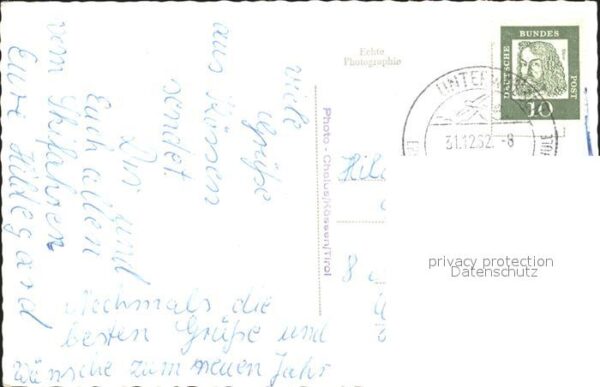 Viele
Grüße
aus Kössen
sendet
Dir und
Euch allen
vom Skifahren
Eure Hildegard
Nochmals die
besten Grüße und
Wünsche zum neuen Jahr
Echte
Photographie
Photo - Chalus/Kössen/Tirol
DEUTSCHE
BUNDES
POST
10
31.12.62.-8
8
privacy protection
Datenschutz